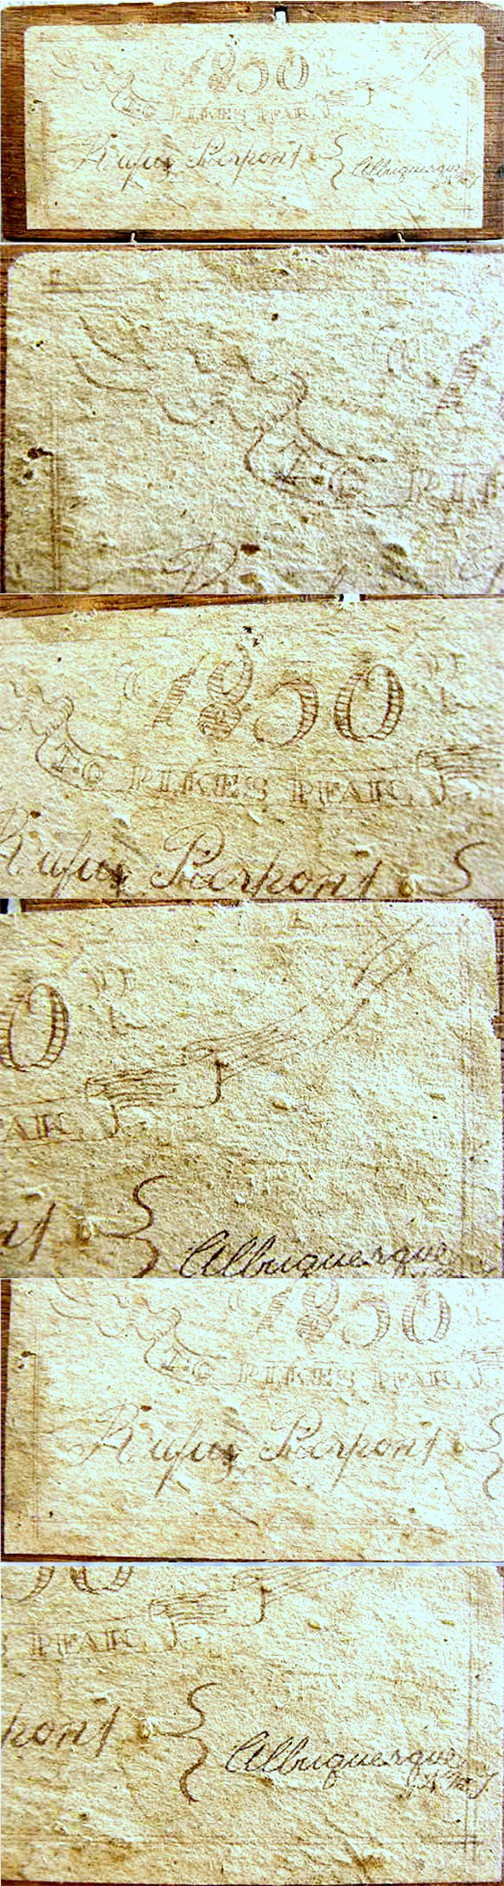 1850
TO PIKES PEAK
Rufus Pierpont
Albuquerque
N.M.T.
TO PIK
1850
TO PIKES PEAK
Rufus Pierpont
0
EAK
nt
Albuquerque
1850
TO PIKES PEAK
Rufus Pierpont
50
S PEAK
pont
Albuquerque
N.M.T.